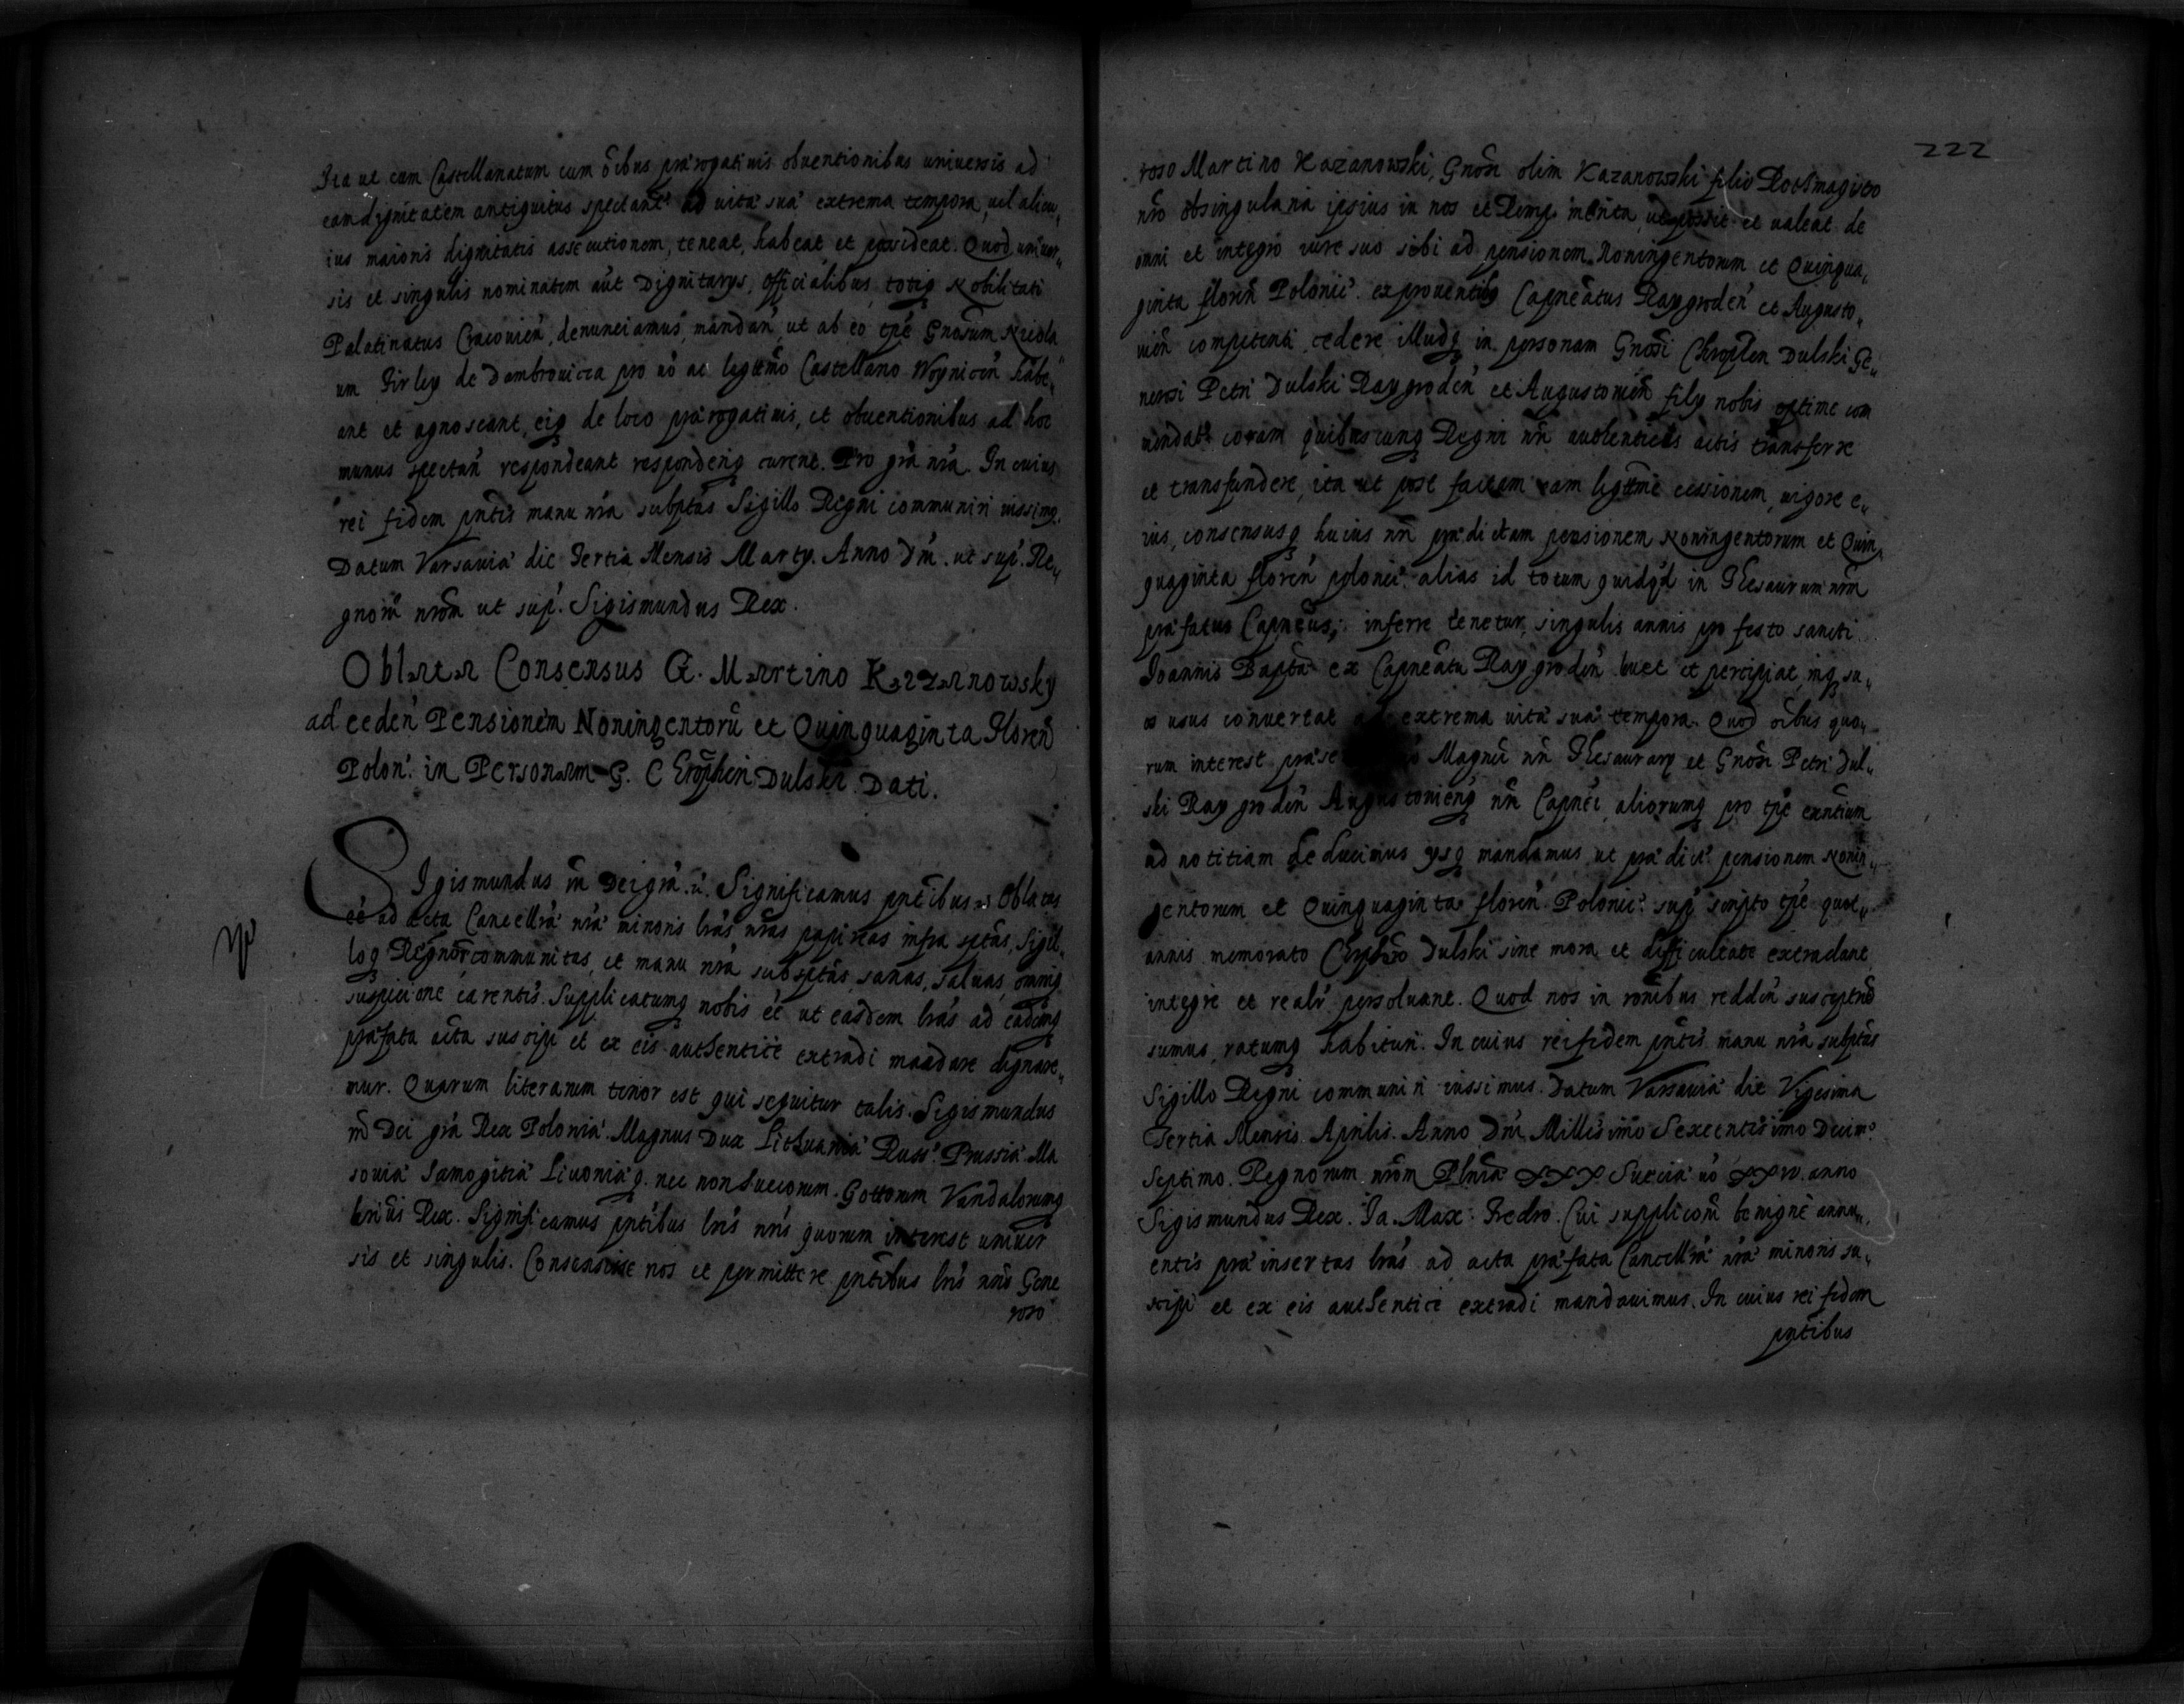 Ita ut eam Castellanatum cum oībus prærogatiuis obuentionibus uniuersis ad
eam dignitatem antiquitus spectantˢ ad uitæ suæ extrema tempora, uel alicu„
ius maioris dignitatis assecutionem, teneat, habeat et possideat. Quod uniuer„
sis et singulis nominatim aūt Dignitarys, Officialibus, totiq Nobilitati
Palatinatus Cracouień, denunciamus, mandań, ut ab eo tp̄e Gnosum Nicola
um Firley de Dambrouicza pro uō ac legitmo Castellano Woynicen̄ habe„
ant et agnoscant, eiq de loco prærogatiuis, et obuentionibus ad hoc
munus spectań respondeant responderiq curent. Pro grā nrā. In cuius
rei fidem pntīs manu nrā subptas Sigillo Regni communiri iussimꝯ.
Datum Varsauiæ die Tertia Mensis Marty. Anno Dm̄. ut sup̄. Re„
gnorū nrōm ut sup̄. Sigismundus Rex.
Oblata Consensus G. Martino Kazanowsky
ad ceden̄ Pensionem Noningentorū et Quinquaginta Floren̄
Polon̄. in Personam G. Chrophori Dulski Dati.
SIgismundus IIī Dei grā. Significamus pntībus Oblatas
eē ad acta Cancellrīæ nræ minoris lrās nrās papireas infra sptas, Sigil„
loq Regnor communitas, et manu nrā subsptas, sanas, saluas, omniq
suspicione carentis. Supplicatumq nobis eē ut easdem lrās ad eademq
præfata acta suscipi et ex eis authentice extradi mandare dignare„
mur. Quarum literarum tenor est qui sequitur talis. Sigismundus
IIī Dei grā Rex Poloniæ. Magnus Dux Lithuaniæ Russˢ. Prussiæ Ma
souiæ Samogitiæ Liuoniæq. nec non Suecorum. Gottorum Vandalorumq
hrius Rex. Significamus pntībus lrīs nrīs quorum interest uniuer
sis et singulis. Consensisse nos et permittere pntībus lrīs nrīs Gene
roso
222
roso Martino Kazanowski, Gnosi olim Kazanowski filio Rotmagistro
nrō ob singularia ipsius in nos et Remp merita, ut possit et ualeat de
omni et integro iure suo sibi ad pensionem Noningentorum et Quinqua„
ginta floren̄ Polonicˢ. ex prouentibꝯ Capneatus Raygroden̄ et Augusto„
uien̄ competenti cedere illudq in personam Gnosi Chrophori Dulski Ge„
nerosi Petri Dulski Raygroden̄ et Augustouien̄ fily nobis optime com
mendatˢ coram quibuscunq Regni nrī authenticis actis transferre
et transfundere, ita ut post factam eam legitme cessionem, uigore e„
ius, consensusq huius nrī prædictam pensionem Noningentorum et Quin„
quaginta floren̄ polonicˢ. alias id totum quidqd in Thesaurum nrm
præfatus Capneus, inferre tenetur, singulis annis pro festo sancti
Joannis Bapta ex Capneatu Raygroden̄ leuet et percipiat, inq su„
os usus conuertat ad extrema uitæ suæ tempora. Quod oībus quo„
rum interest præse Magnci nrī Thesaurary et Gnosi Petri Dul„
ski Raygroden̄ Augustouienq nrī Capnei, aliorumq pro tp̄e exntium
ad notitiam deducimus ysq mandamus ut prædictˢ pensionem Nonin„
gentorum et Quinquaginta floren̄ Polonicˢ. sup̄ scripto tp̄e quot„
annis memorato Chrphro Dulski sine mora et difficultate extradant
integre et realr̄ persoluant. Quod nos in ronibus redden̄ suscepturi
sumus, ratumq habituri. In cuius rei fidem pntīs manu nrā subptas
Sigillo Regni communiri iussimus. Datum Varsauiæ die Vigesima
Tertia Mensis Aprilis. Anno Dnī Millesimo Sexcentisimo Decimo
Septimo. Regnorum nrōm Plniæ XXX Sueciæ uō XXIV. anno
Sigismundus Rex. Ja. Max. Fredro. Cui supplicōni benigne annu„
entis præinsertas lrās ad acta præfata Cancellrīæ nræ minoris su„
scipi et ex eis authentice extradi mandauimus. In cuius rei fidem
pntībus